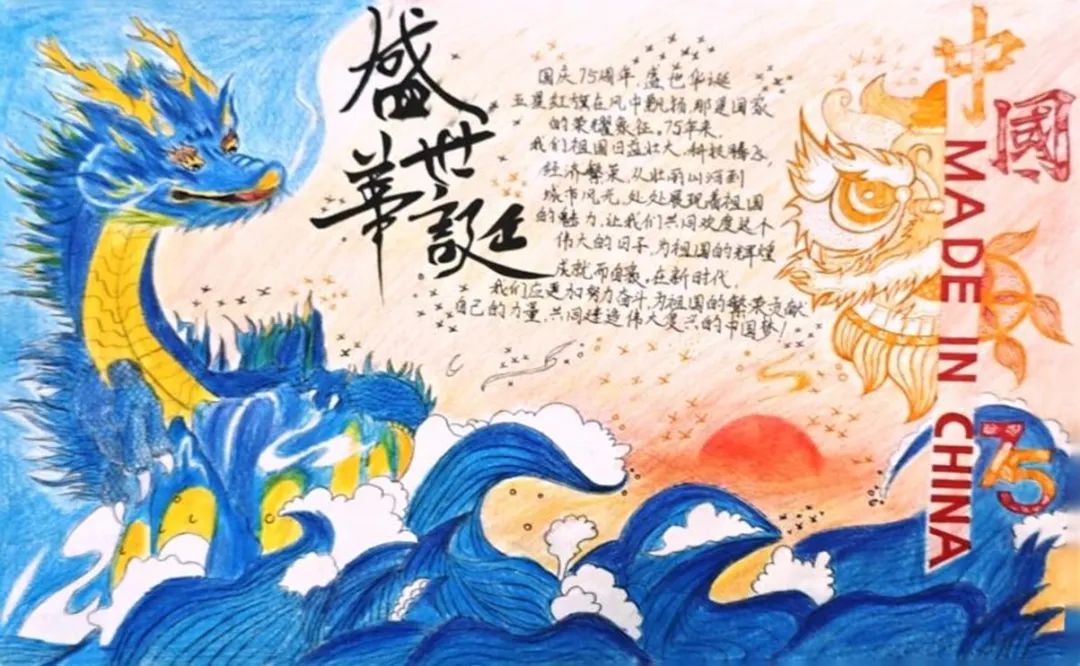 盛世
華誕
国庆75周年,盛世华诞
五星红旗在风中飘扬,那是国家
的荣耀象征。75年来,
我们祖国日益壮大,科技腾飞,
经济繁荣,从壮丽山河到
城市风光,处处展现着祖国
的魅力,让我们共同欢度这个
伟大的日子,为祖国的辉煌
成就而自豪,在新时代,
我们应更加努力奋斗,为祖国的繁荣贡献
自己的力量,共同建造伟大复兴的中国梦!
中國
MADE IN CHINA
75